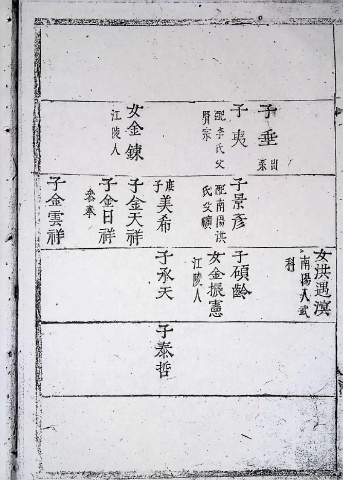 子垂
出系
子夷
配李氏父
賢宗
女金鍊
江陵人
子景彦
配南陽洪
氏父礦
庶子美希
子金天祥
子金日祥
參奉
子金雲祥
女洪遇濵
南陽人武
科
子碩齡
女金振憲
江陵人
子承天
子泰哲